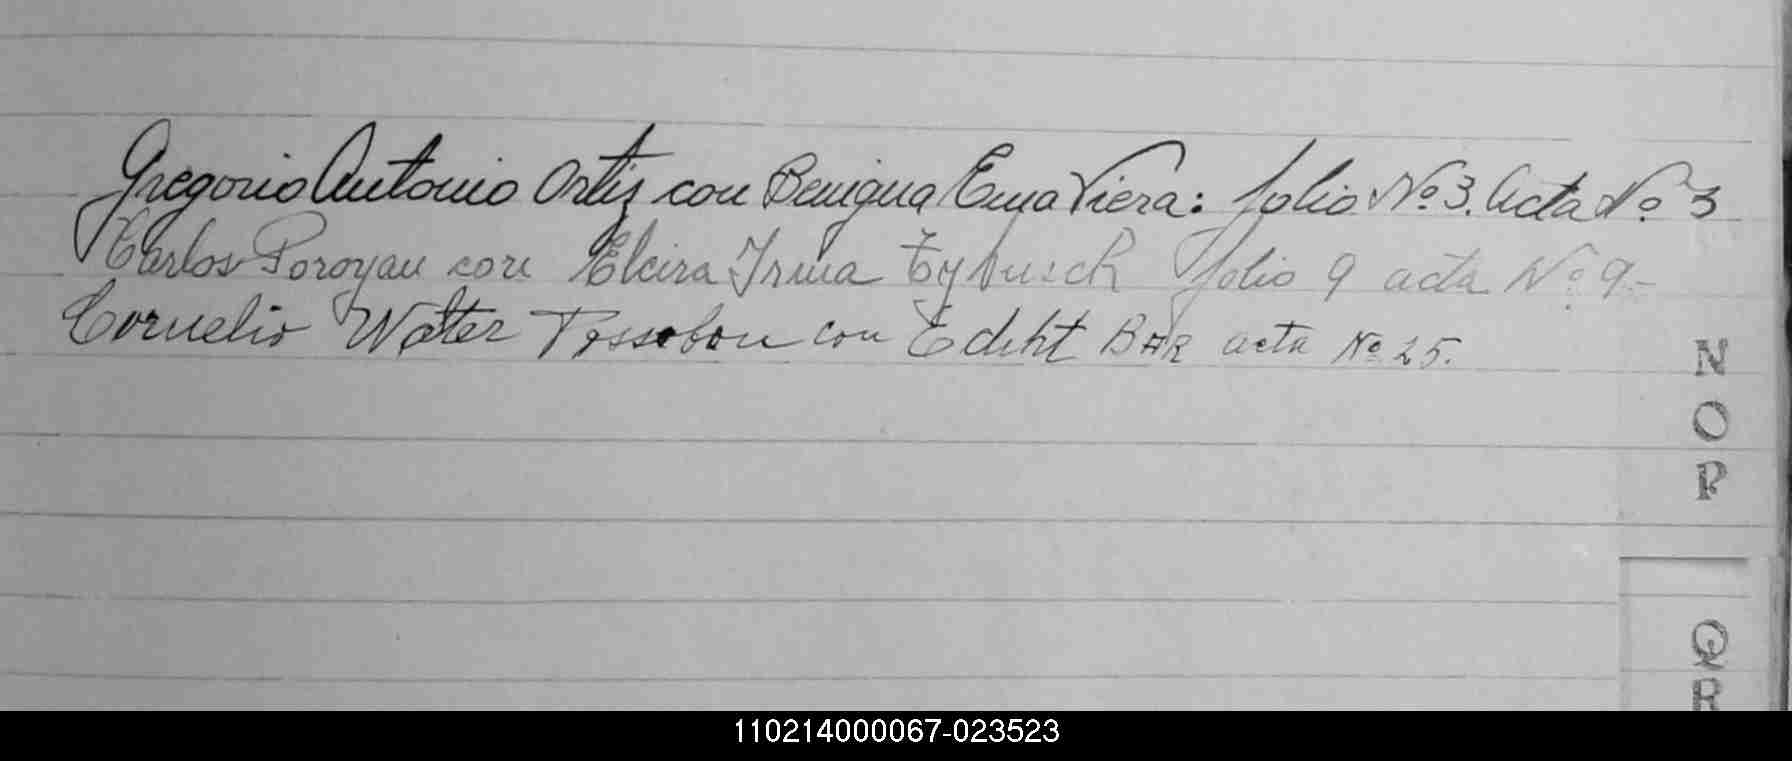 Gregorio Antonio Ortiz con Benigna Ema Viera: folio Nº 3. Acta Nº 3
Carlos Poroyan con Elcira Irma Eybusch folio 9 acta Nº 9-
Cornelio Walter con Ediht BAR acta Nº 25.
N
O
P
Q
R
110214000067-023523